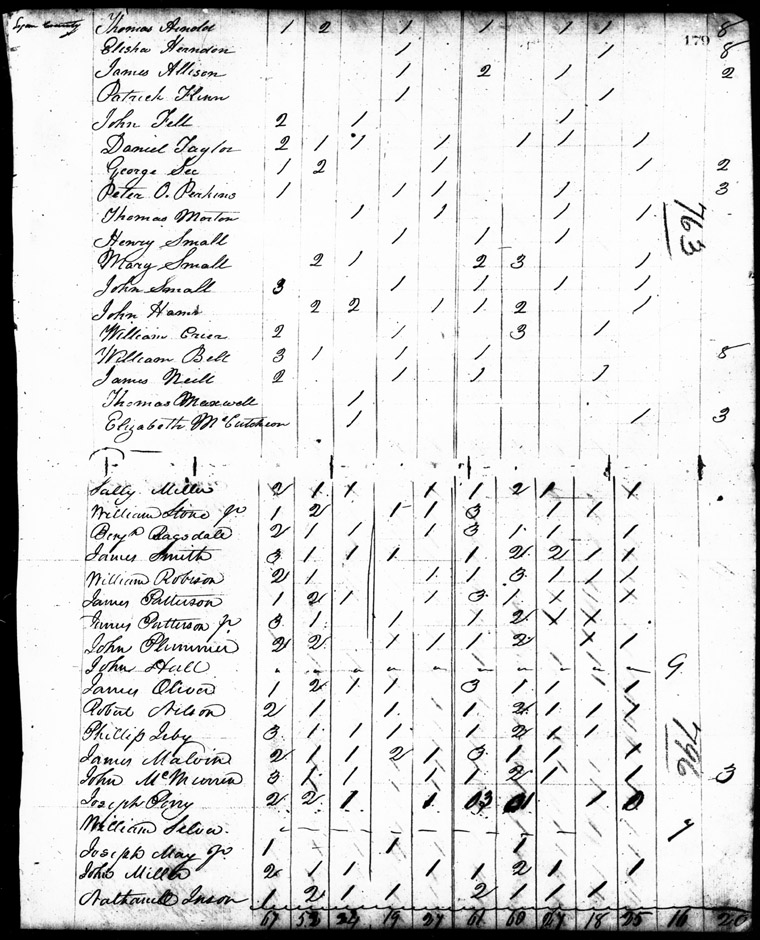 179
Thomas Arnold 1 2 1 1 1 1 8
Elisha Herndon 1 1 8
James Allison 1 2 1 2
Patrick 1 1
John Fell 2 1 1
Daniel Taylor 2 1 1 1 1 1 1
George See 1 2 1 1 2
Peter O. Perkins 1 1 1 1 3
Thomas Morton 1 1 1 1
Henry Small 1 1 1
763
Mary Small 2 1 2 3 1
John Small 3 1 1 1 1
John 2 2 1 1 2 1
William 2 1 3 1
William Bell 3 1 1 1 8
James Neill 2 1 1 1
Thomas Maxwell 1
Elizabeth McCutcheon 1 1 3
Sally Miller 2 1 1 1 1 2 1 1
William Stone Jr 1 2 1 1 3 1 1
Benjn Ragsdale 2 1 1 1 3 1 1 1
James Smith 3 1 1 1 1 2 2 1 1
William Robison 2 1 1 1 3 1 1 1
James Patterson 1 2 1 1 3 1
James Patterson Jr 3 1 1 1 2
John Plummer 2 2 1 1 1 2 1
John Hall 9
James Oliver 1 2 1 1 3 1 1 1
Robert Nelson 2 1 1 1 2 1 1 1
Phillip 3 1 1 1 1 2 1 1
796
James Malvin 2 1 1 2 1 3 1 1
John McMurrin 3 1 1 1 1 2 1 1 3
Joseph Perry 2 2 1 1
William 7
Joseph May Jr 1 1 1
John Miller 2 1 1 1 1 2 1 1
Nathaniel Inson 1 2 1 1 2 1 1 1
67 53 19 27 61 60 27 18 25 16 20